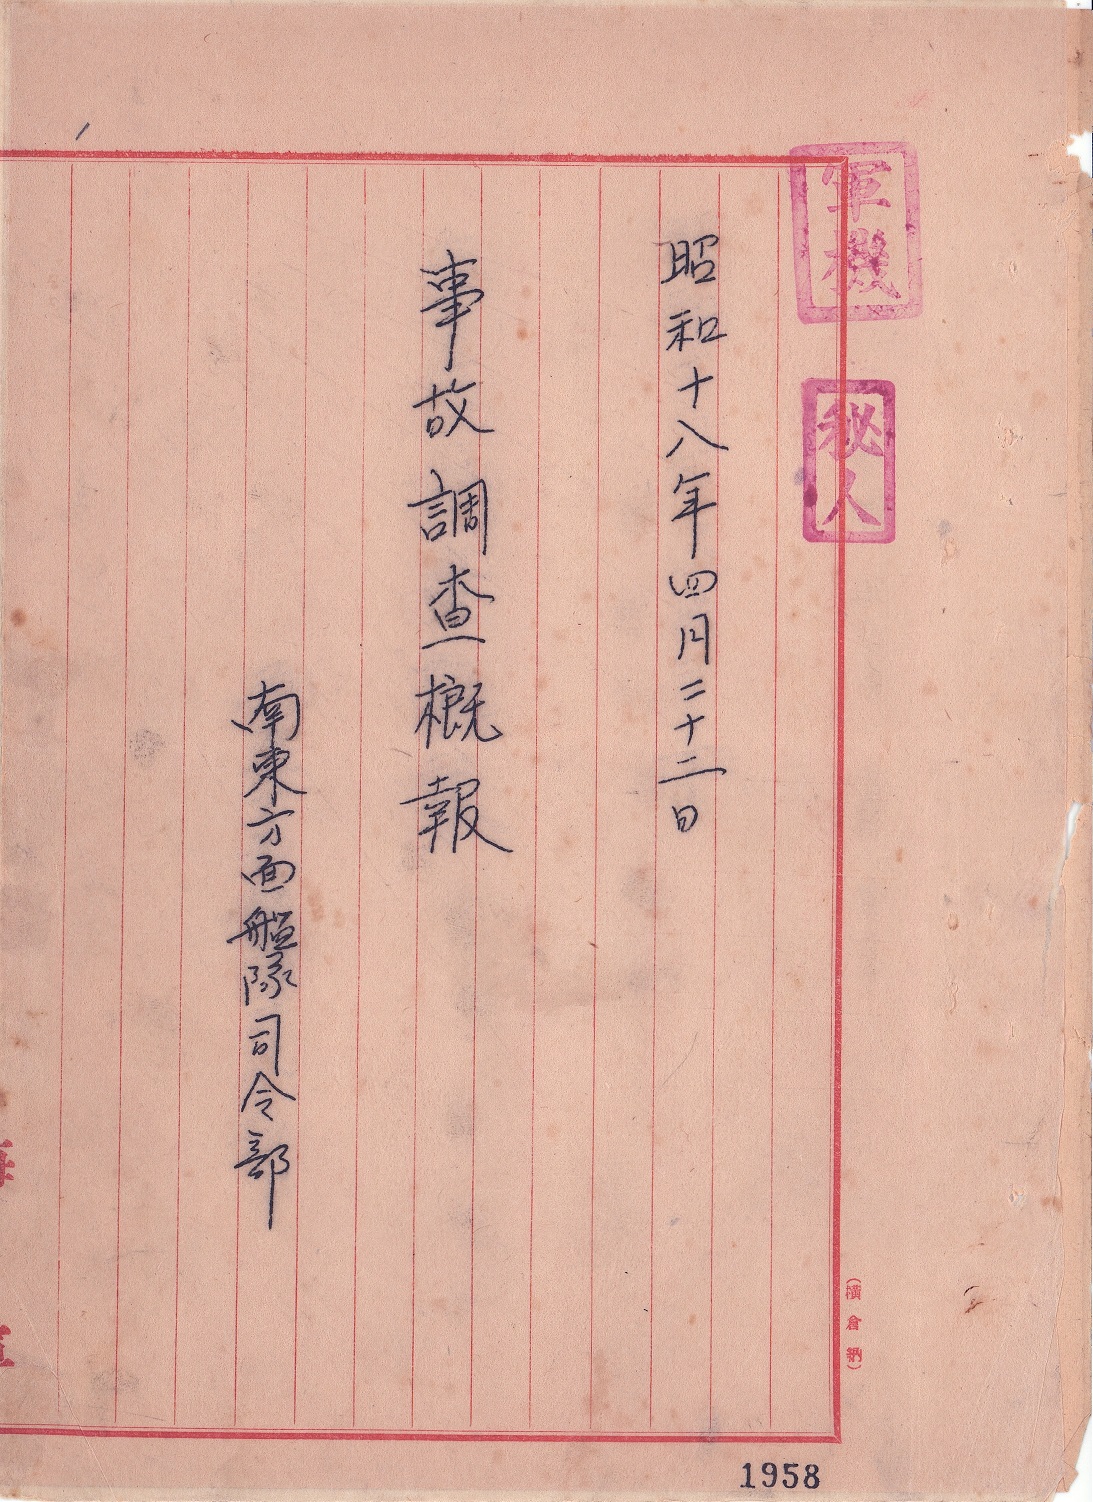 軍機
秘人
昭和十八年四月二十二日
事故調査概報
南東方面艦隊司令部
(横倉納)
海
1958